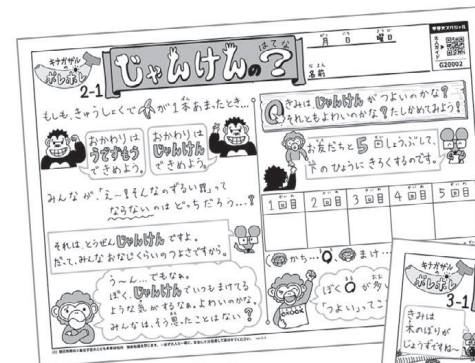 キナガザルの
ポレポレ
2-1
じゃんけんの？
はてな
月 日 曜日
名前
学習大スペシャル
G20002
もしも、きゅうしょくで が1本あまったとき…
おかわりは
うでずもう
できめよう。
おかわりは
じゃんけん
できめよう。
みんなが、「え～？そんなのずるい罪」って
ならないのはどっちだろう…？
それは、とうぜんじゃんけんですよ。
だって、みんなおなじくらいのつよさですから。
う～ん…でもなあ。
ぼく、じゃんけんでいつもまけてる
ような気がするなあ。よわいのかな。
みんなは、そう思ったことはない？
Q きみはじゃんけんがつよいのかな？
それともよわいのかな？たしかめてみよう！
お友だちと5回しょうぶして、
下のひょうにきろくするのです。
1回目 2回目 3回目 4回目 5回目
かち…○、 まけ…
ぼく
○が多い
「つよい」ってこ
キナガザル
ポレポレ
3-1
きみは
木のぼりが
じょうずですね～